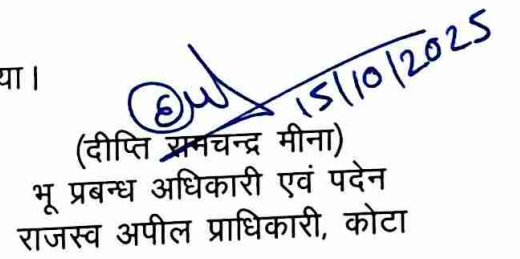 या।
15/10/2025
(दीप्ति रामचन्द्र मीना)
भू प्रबन्ध अधिकारी एवं पदेन
राजस्व अपील प्राधिकारी, कोटा